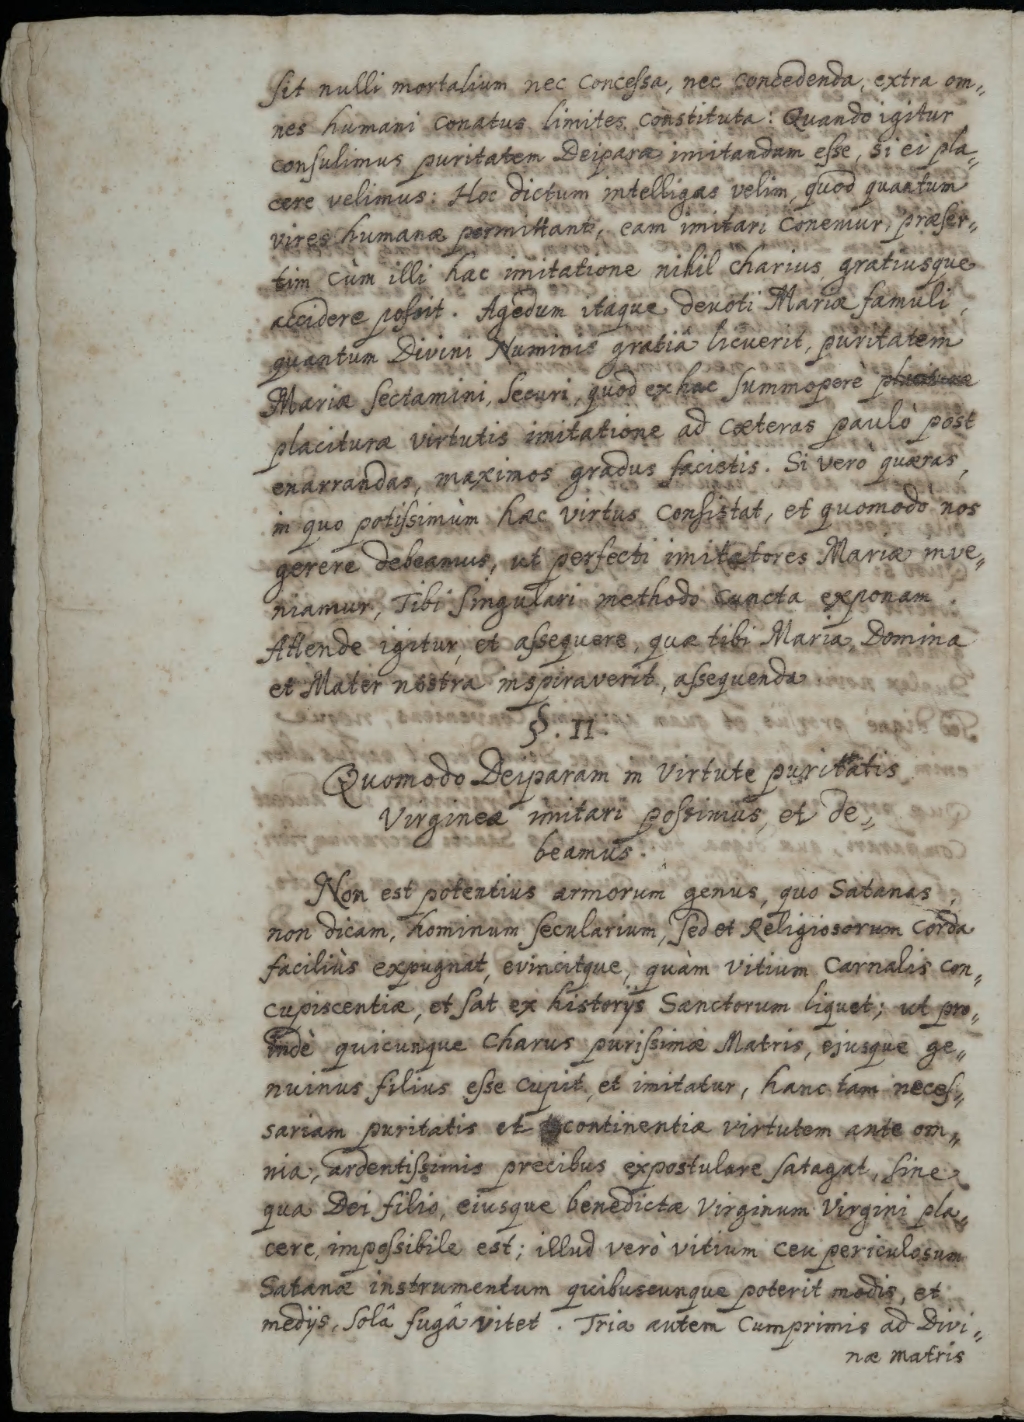 sit nulli mortalium nec concessa, nec concedenda, extra om„
nes humani conatus limites constituta: Quando igitur
consulimus puritatem Deiparæ imitandam esse, si ei pla„
cere velimus: Hoc dictum intelligas velim, quod quantum
vires humanæ permittant, eam imitari conemur, præser„
tim cùm illi hac imitatione nihil charius, gratiusque
accidere possit. Agedum itaque devoti Mariæ famuli,
quantum Divini Numinis gratiâ licuerit, puritatem
Mariæ sectamini, securi, quod ex hac summoperè
placituræ virtutis imitatione ad cæteras paulò post
enarrandas, maximos gradus facietis. Si verò quæras,
in quo potissimùm hæc virtus consistat, et quomodò nos
gerere debeamus, ut perfecti imitatores Mariæ inve„
niamur, Tibi singulari methodo cuncta exponam.
Attende igitur, et assequere, quæ tibi Maria, Domina
et Mater nostra inspiraverit, assequenda.
§. II.
Quomodo Deiparam in virtute puritatis
Virgineæ imitari possimus, et de„
beamus.
Non est potentius armorum genus, quo Satanas,
non dicam, hominum secularium, sed et Religiosorum corda
faciliùs expugnat, evincitque, quàm vitium Carnalis con„
cupiscentiæ, et sat ex historijs Sanctorum liquet; ut pro„
indè quicunque Charus purissimæ Matris, ejusque ge„
nuinus filius esse cupit, et imitatur, hanc tam neces„
sariam puritatis et continentiæ virtutem ante om„
nia, ardentissimis precibus expostulare satagat, sine
qua Dei filio, eiusque benedictæ Virginum Virgini pla„
cere, impossibile est; illud verò vitium ceu periculosum
Satanæ instrumentum quibuscunque poterit modis, et
medijs, solâ fugâ vitet. Tria autem cumprimis ad Divi„
næ matris